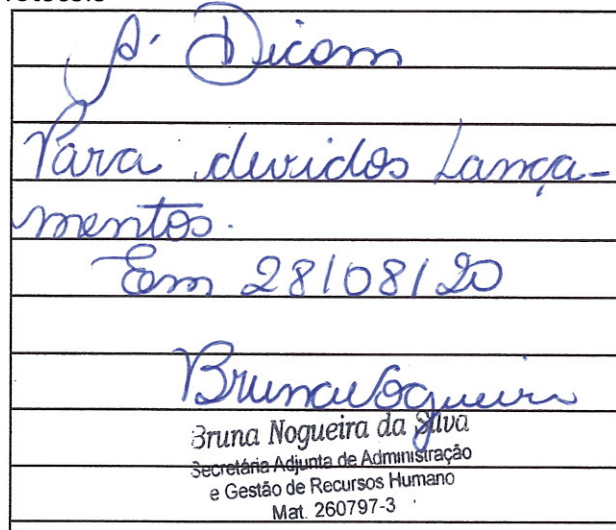 À Dicom
Para devidos Lança-
mentos.
Em 28/08/20
Bruna Nogueira
Bruna Nogueira da Silva
Secretária Adjunta de Administração
e Gestão de Recursos Humano
Mat. 260797-3